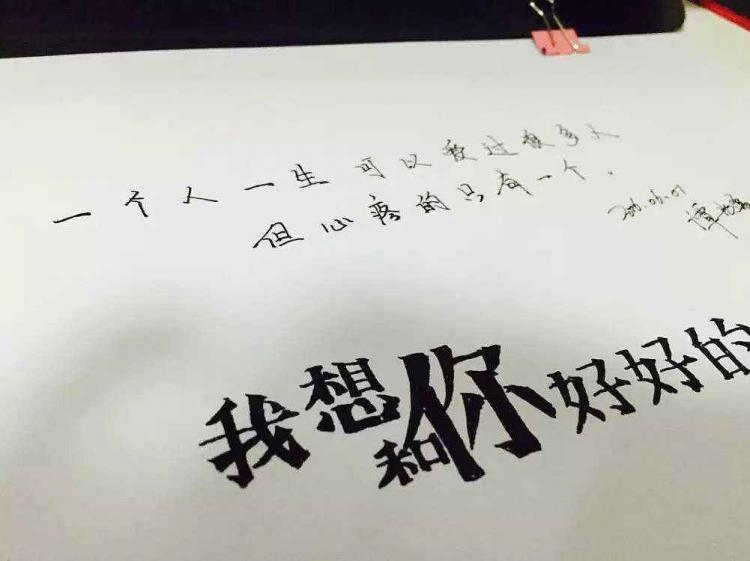 一个人一生可以爱过很多人
但心疼的只有一个.
2016.06.01
谭
我想和你好好的